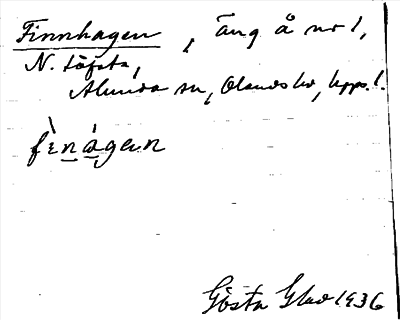 Finnhagen, äng å nr 1,
N. Löfsta,
Alunda sn, Olands hd, Upps. l.
fìnágən
Gösta Glad 1936